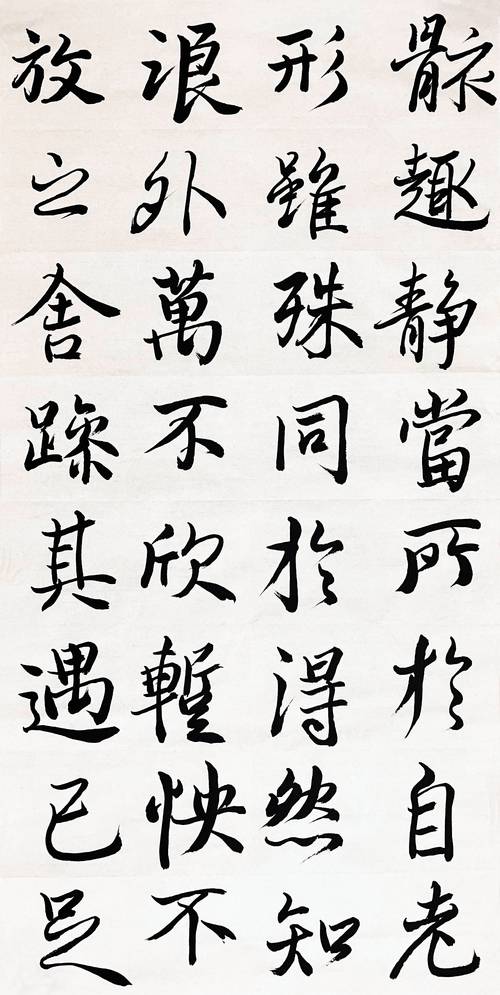 放浪形骸
之外雖趣
舍萬殊静
躁不同當
其欣於所
遇暫得於
己怏然自
足不知老